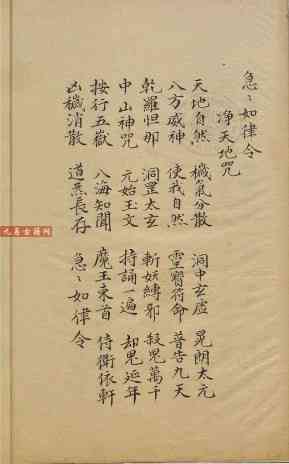 急〻如律令
淨天地咒
天地自然 穢氣分散 洞中玄虛 晃朗太元
八方威神 使我自然 靈寶符命 普告九天
乾羅怛那 洞罡太玄 斬妖縛邪 殺鬼萬千
中山神咒 元始玉文 持誦一遍 却鬼延年
按行五嶽 八海知聞 魔王束首 侍衛依軒
凶穢消散 道炁長存 急〻如律令
九易古籍网